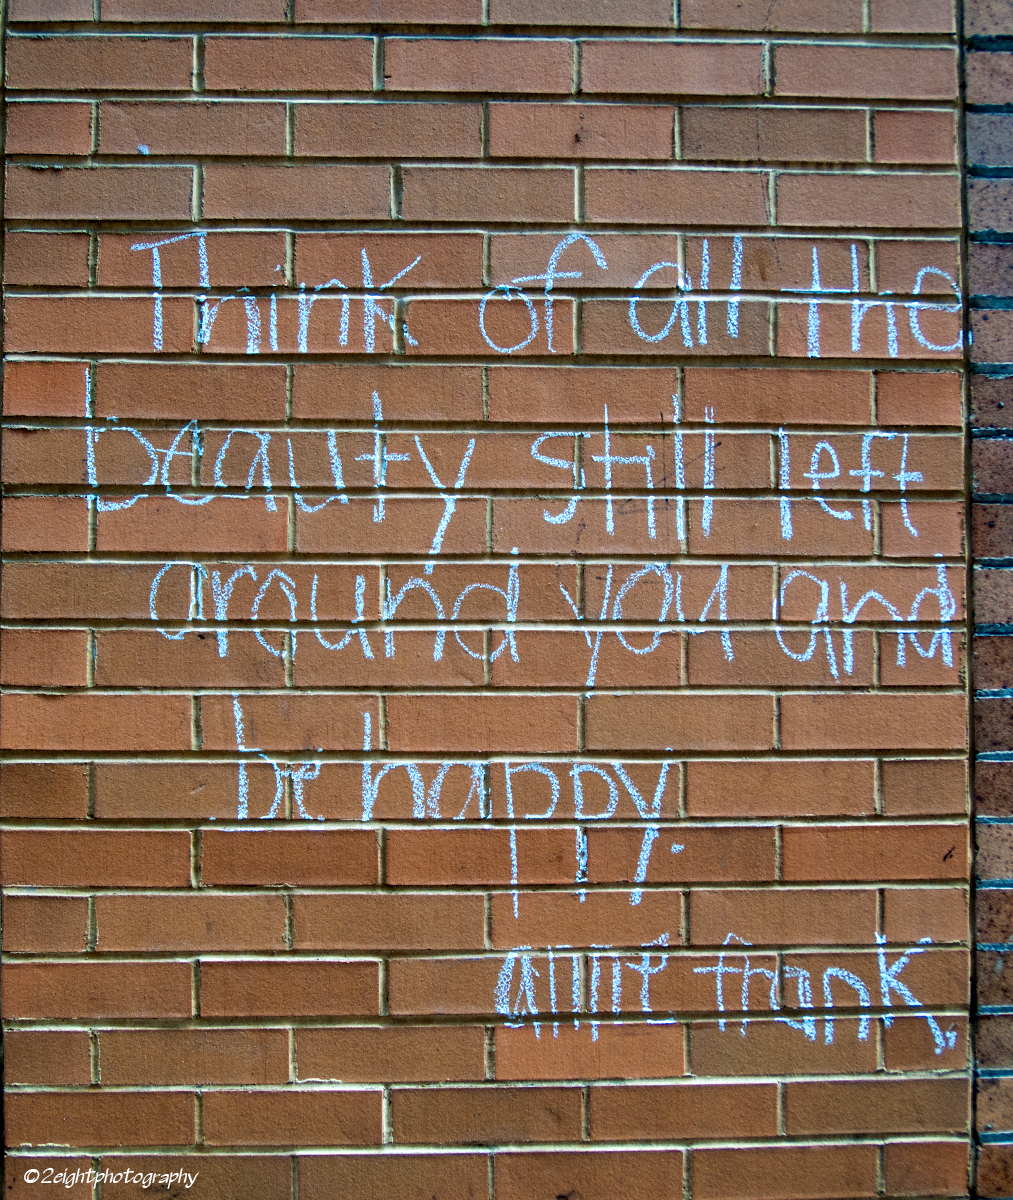 Think of all the
beauty still left
around you and
be happy.
anne frank.
©2eightphotography